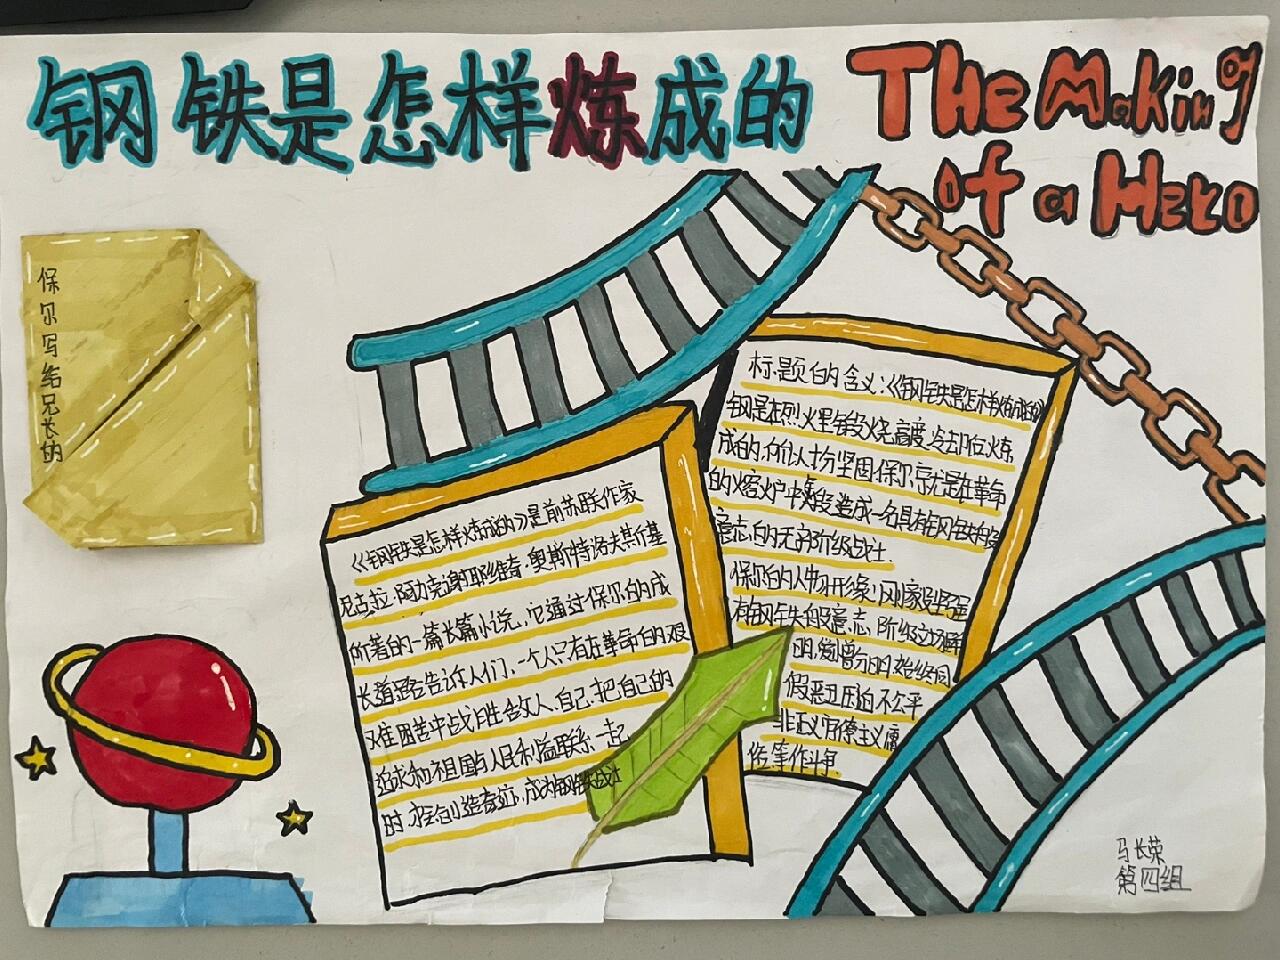 钢铁是怎样炼成的
The Making
of a Hero
保尔写给兄长的
《钢铁是怎样炼成的》是前苏联作家
尼古拉·阿列克谢耶维奇·奥斯特洛夫斯基
所著的一篇长篇小说,它通过保尔的成
长道路告诉人们,一个人只有在革命的艰
难困苦中战胜敌人自己,把自己的
追求和祖国与人民利益联系一起
时,才会创造奇迹,成为钢铁战士
标题的含义:《钢铁是怎样炼成的》
钢是在烈火里锻烧高度冷却后炼
成的,所以十分坚固,保尔就是在革命
的熔炉中锻造成一名具有钢铁般
意志的无产阶级战士.
保尔的人物形象:刚毅坚强
有钢铁般意志,阶级立场鲜
明,爱憎分明,始终同
假恶丑压迫不公平
非正义官僚主义庸
俗事作斗争
马长荣
第四组